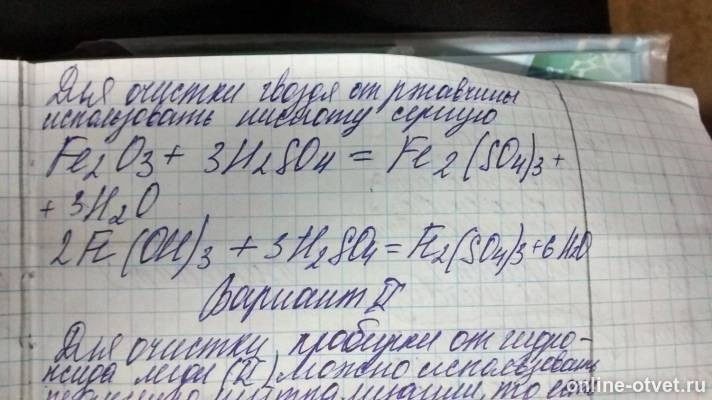 Для очистки гвоздя от ржавчины
использовать кислоту серную
Fe2O3 + 3H2SO4 = Fe2(SO4)3 +
+ 3H2O
2Fe(OH)3 + 3H2SO4 = Fe2(SO4)3 + 6H2O
Вариант II
Для очистки пробирки от гидро-
ксида меди (II) можно использовать
то есть
online-otvet.ru